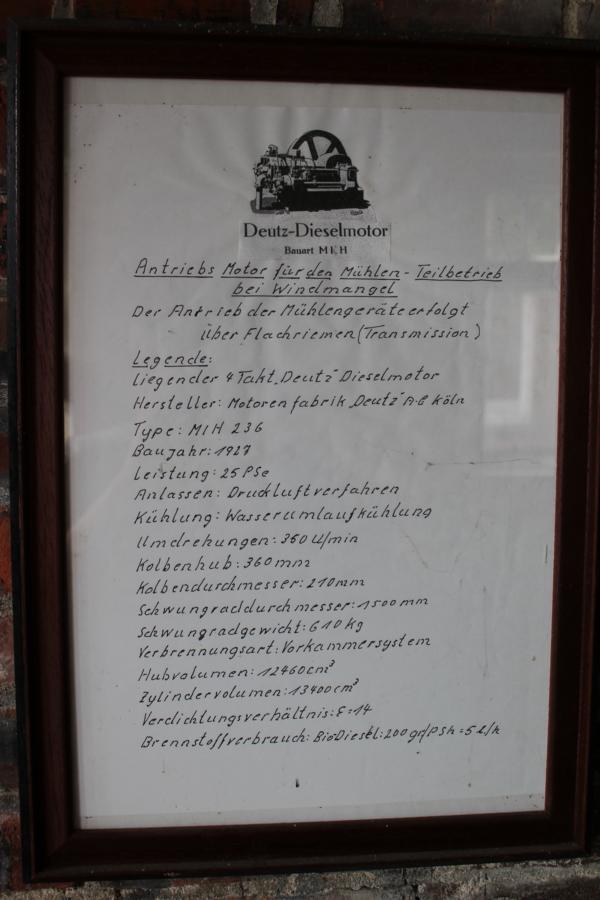 Deutz-Dieselmotor
Bauart MIH
Antriebs Motor für den Mühlen-Teilbetrieb
bei Windmangel
Der Antrieb der Mühlengeräte erfolgt
über Flachriemen (Transmission)
Legende:
liegender 4 Takt „Deutz" Dieselmotor
Hersteller: Motoren fabrik „Deutz" A.G Köln
Type: MIH 236
Baujahr: 1927
Leistung: 25 PSe
Anlassen: Druckluftverfahren
Kühlung: Wasserumlaufkühlung
Umdrehungen: 360 U/min
Kolbenhub: 360 mm
Kolbendurchmesser: 210 mm
Schwungraddurchmesser: 1500 mm
Schwungradgewicht: 610 kg
Verbrennungsart: Vorkammersystem
Hubvolumen: 12460 cm³
Zylindervolumen: 13400 cm³
Verdichtungsverhältnis: ε=14
Brennstoffverbrauch: BioDiesel: 200 gr/PSh = 5 l/h